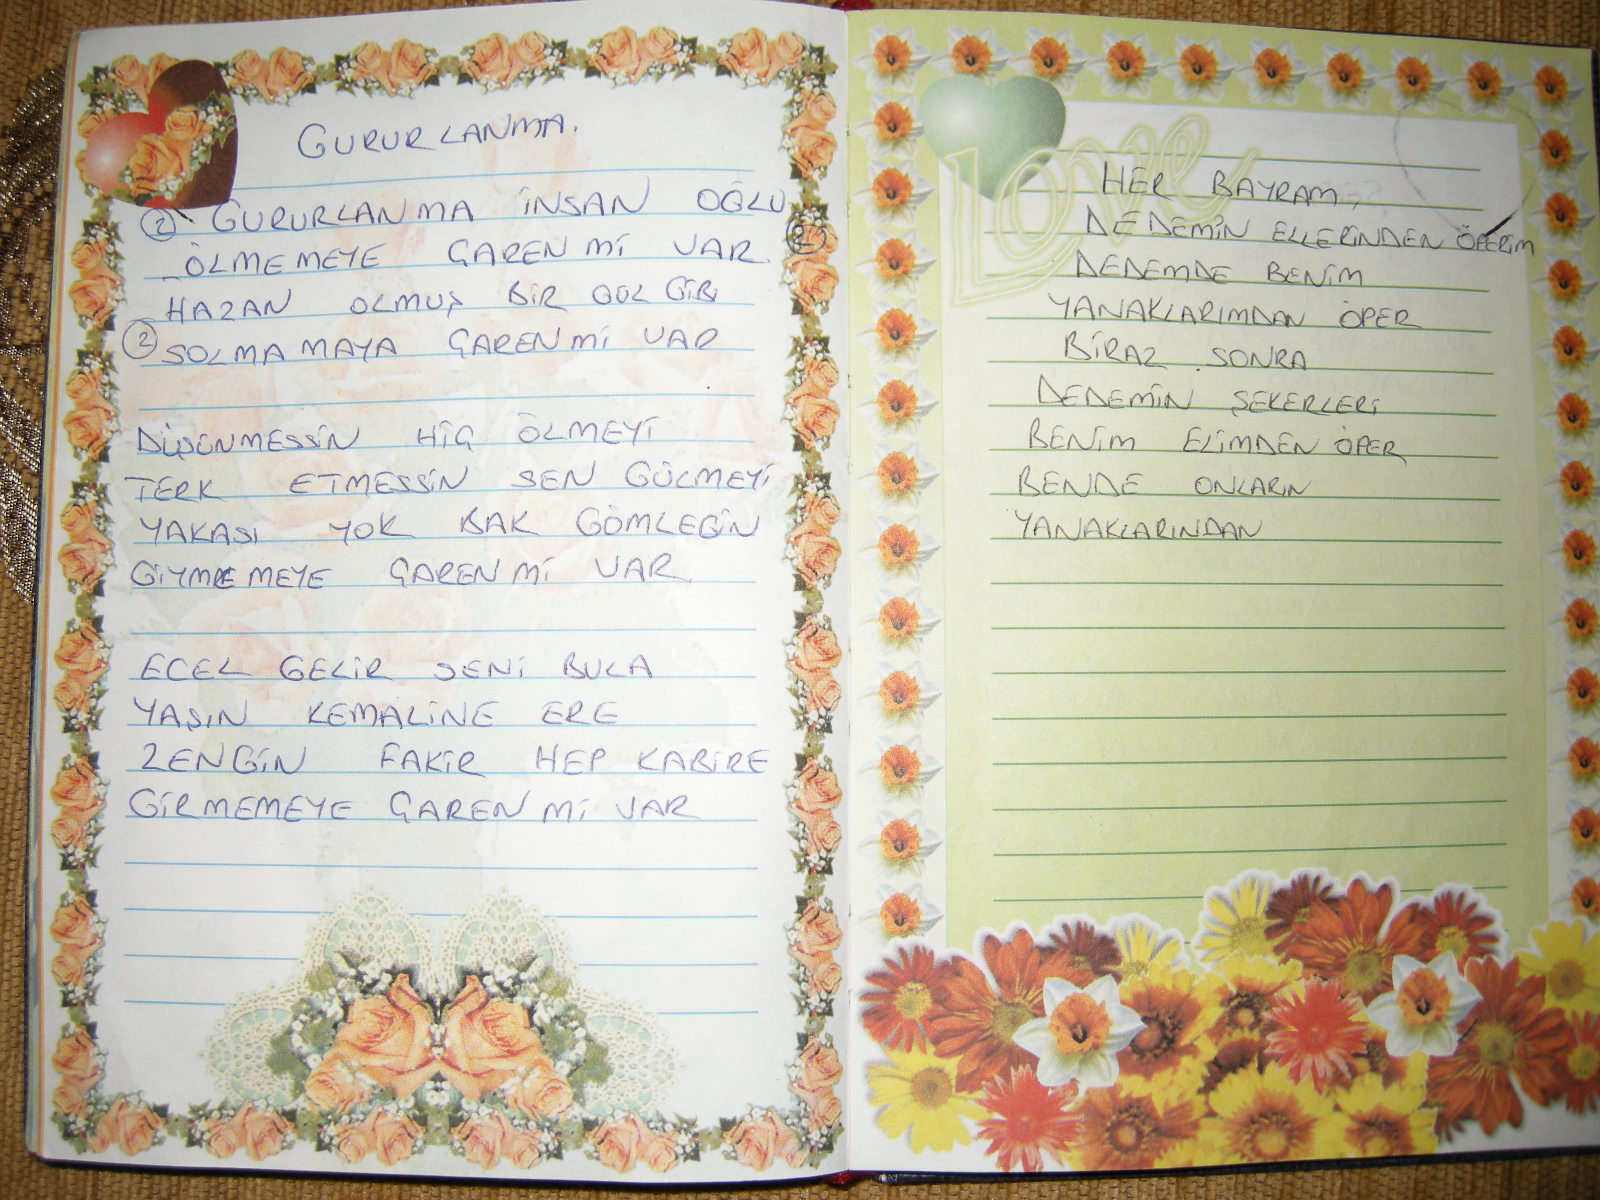 GURURLANMA.
② GURURLANMA İNSAN OĞLU
ÖLMEMEYE ÇAREN Mİ VAR. ②
HAZAN OLMUŞ BİR GÜL GİBİ
② SOLMAMAYA ÇAREN Mİ VAR
DÜŞÜNMESSİN HİÇ ÖLMEYİ
TERK ETMESSİN SEN GÜLMEYİ
YAKASI YOK BAK GÖMLEĞİN
GİYMEMEYE ÇAREN Mİ VAR.
ECEL GELİR SENİ BULA
YAŞIN KEMALİNE ERE
ZENGİN FAKİR HEP KABİRE
GİRMEMEYE ÇAREN Mİ VAR
Love
HER BAYRAM,
DEDEMİN ELLERİNDEN ÖPERİM
DEDEMDE BENİM
YANAKLARIMDAN ÖPER
BİRAZ SONRA
DEDEMİN ŞEKERLERİ
BENİM ELİMDEN ÖPER
BENDE ONLARIN
YANAKLARINDAN